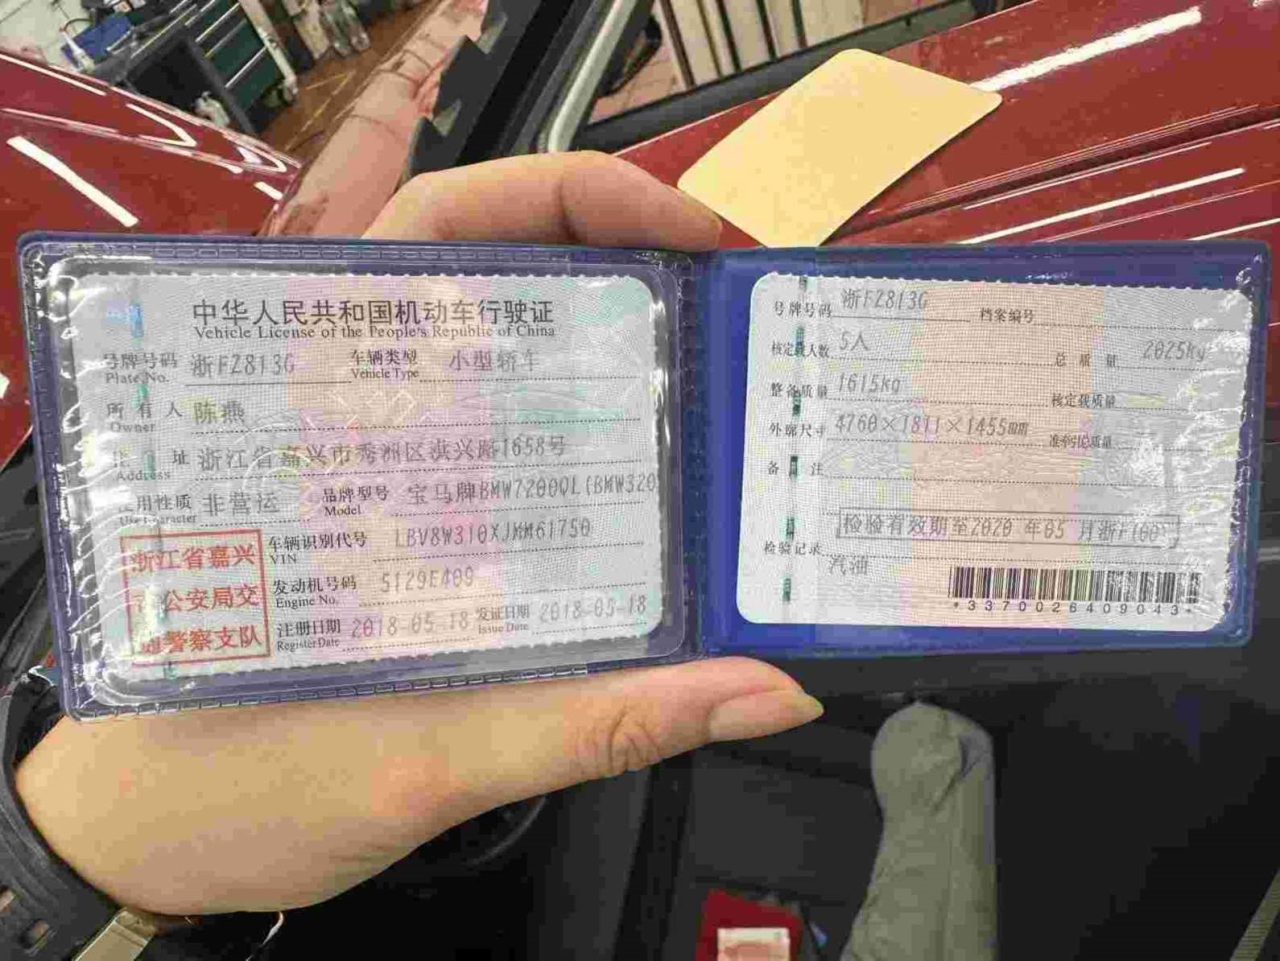 中华人民共和国机动车行驶证
Vehicle License of the People's Republic of China
号牌号码 浙FZ813G 车辆类型 小型轿车
Plate No. Vehicle Type
所有人 陈燕
Owner
住址 浙江省嘉兴市秀洲区洪兴路1658号
Address
使用性质 非营运 品牌型号 宝马牌BMW7200QL(BMW320
Use Character Model
车辆识别代号 LBV8W310XJMM61750
VIN
发动机号码 5129E409
Engine No.
注册日期 2018-05-18 发证日期 2018-05-18
Register Date Issue Date
浙江省嘉兴
市公安局交
通警察支队
号牌号码 浙FZ813G 档案编号
核定载人数 5人 总质量 2025kg
整备质量 1615kg 核定载质量
外廓尺寸 4760×1811×1455mm 准牵引总质量
备注
检验有效期至2020 年05 月浙F
检验记录
汽油
*3370026409043*